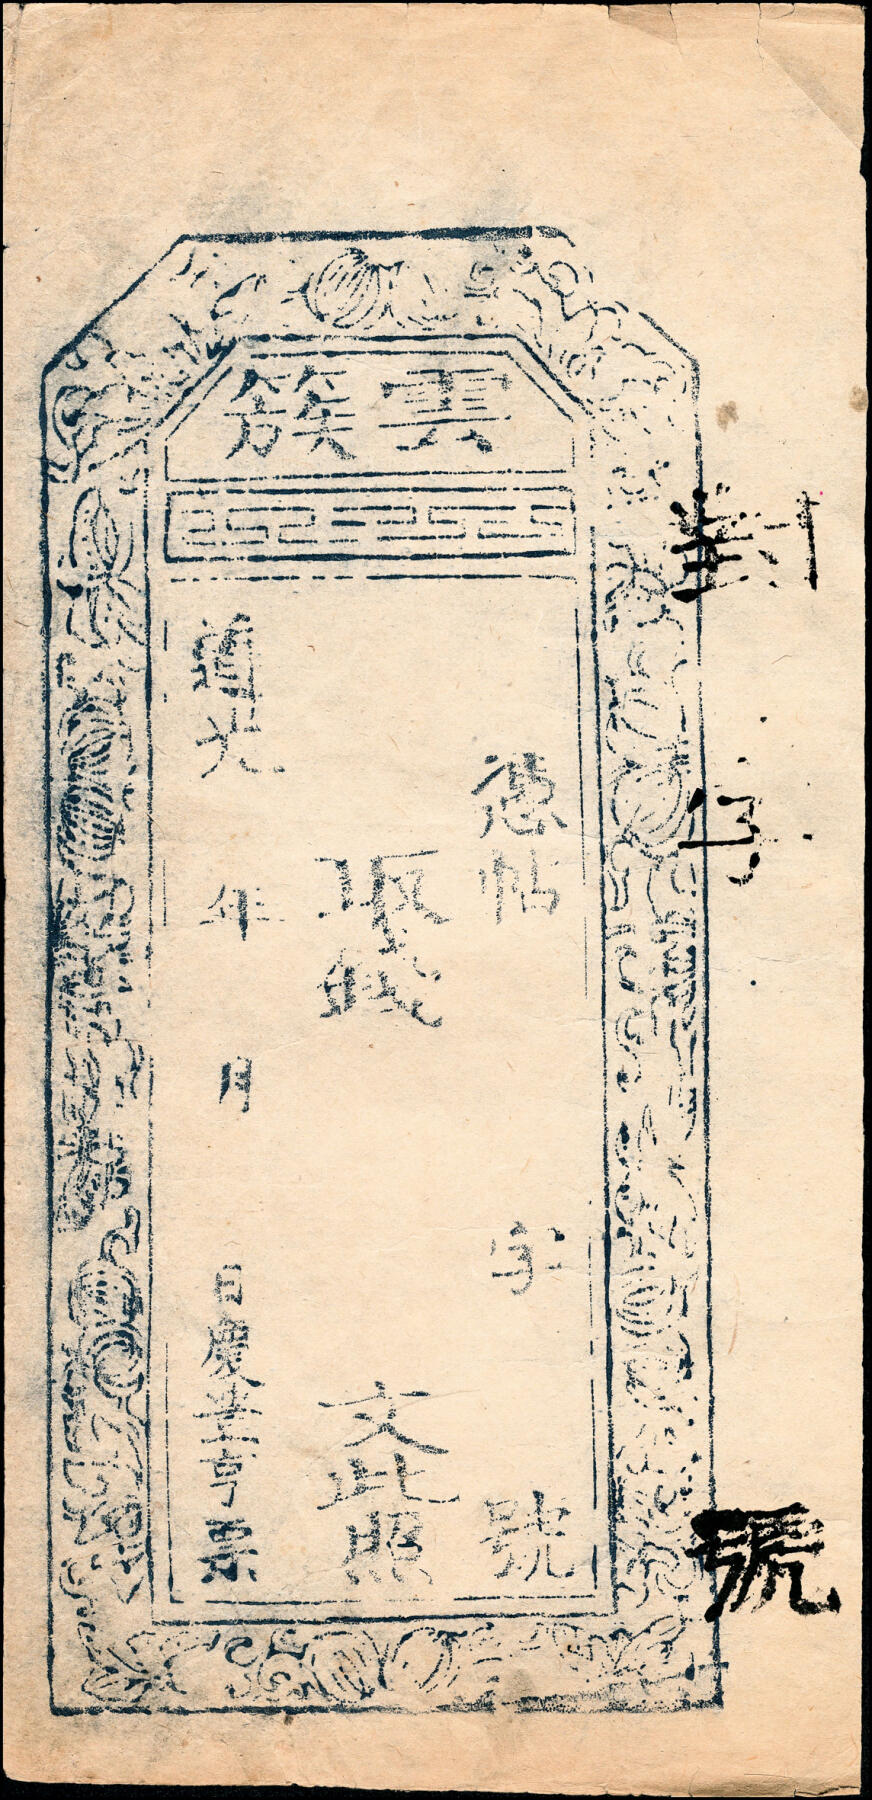 雲簇
憑帖 字 號
取錢 文此照
道光 年 月 日慶華亭票
字
號